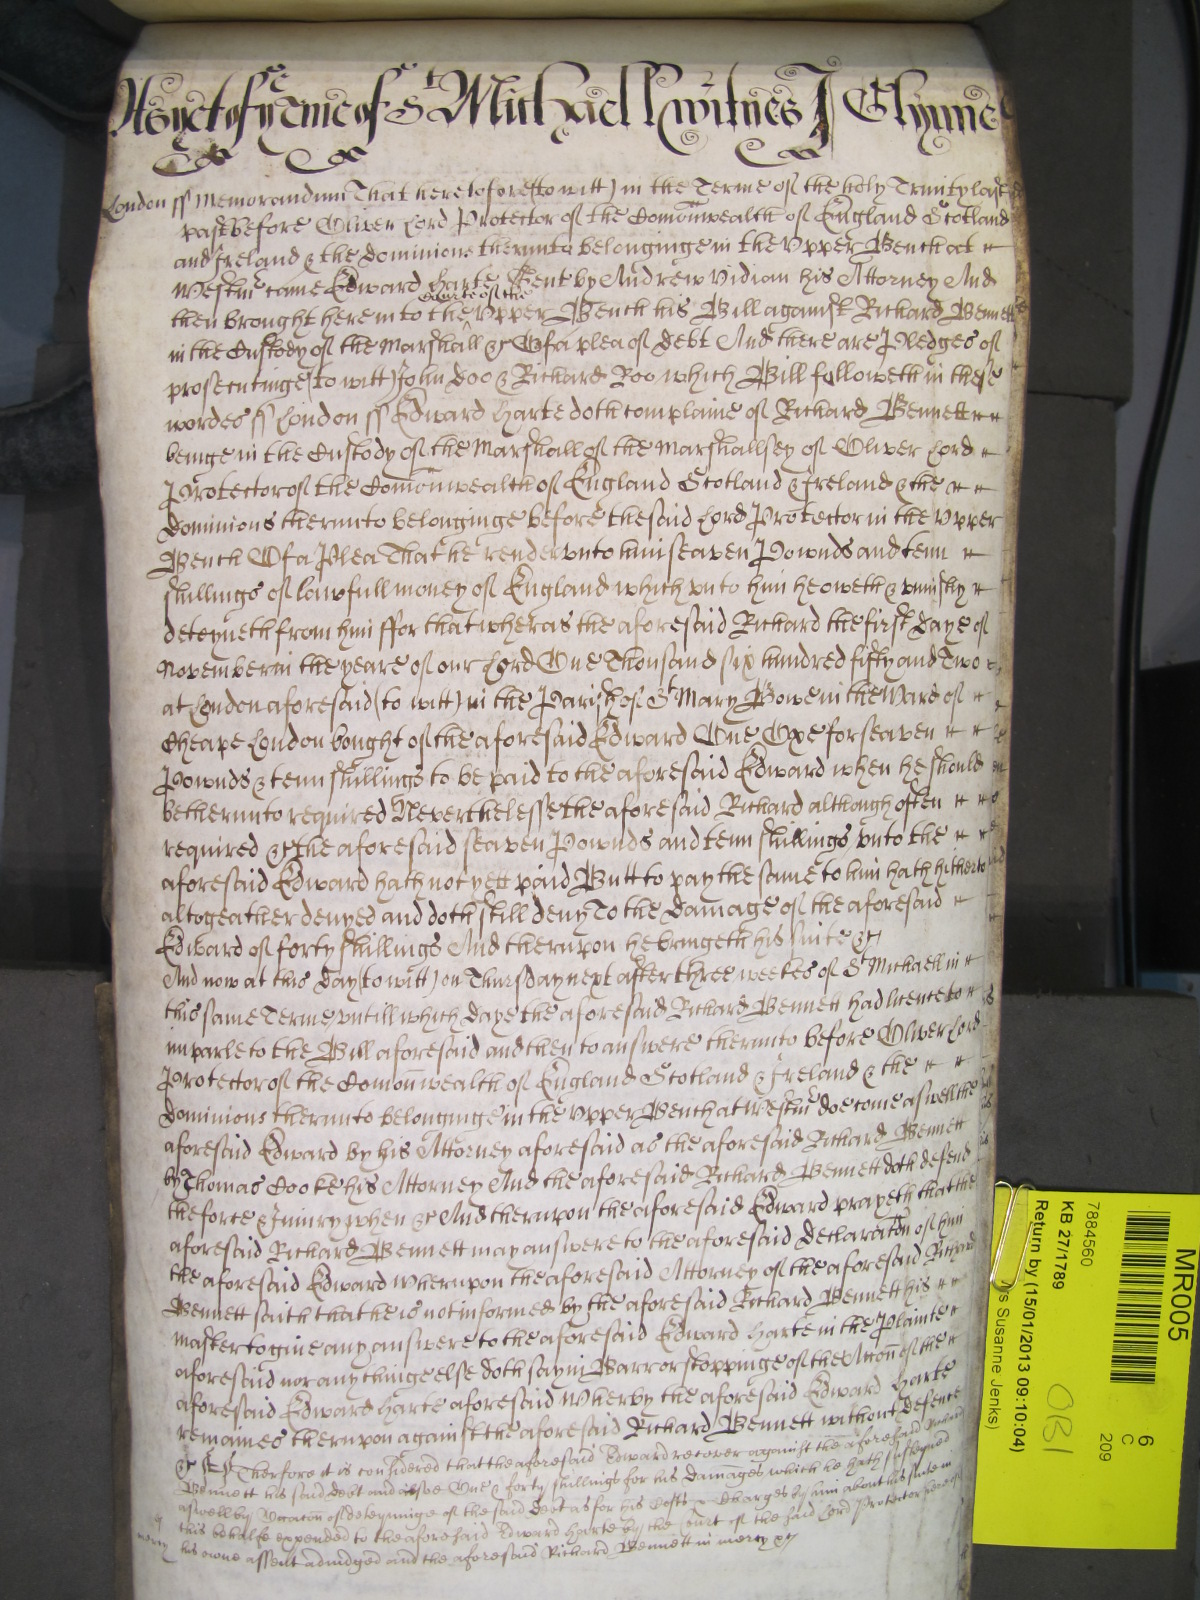 As yet of ye terme of St Michaell witnes J Glynne
London ss Memorandum That heretofore (to witt) in the Terme of the holy Trinity last
past before Oliver Lord Protector of the Comonwealth of England Scotland
and Ireland & the dominions therunto belonginge in the Upper Bench at
Westmr came Edward Harte Gent by Andrew Vidian his Attorney And
then brought here into the Courte of the Upper Bench his Bill against Richard Bennett
in the Custody of the Marshall &c Of a plea of debt And there are Pledges of
prosecutinge (to witt) John Doo & Richard Roo which Bill followeth in these
wordes ss London ss Edward Harte doth complaine of Richard Bennett
beinge in the Custody of the Marshall of the Marshallsey of Oliver Lord
Protector of the Comonwealth of England Scotland & Ireland & the
dominions therunto belonginge before the said Lord Protector in the Upper
Bench Of a Plea That he render unto him seaven Pownds and tenn
shillings of lawfull money of England which unto him he oweth & uniustly
deteyneth from him ffor that wheras the aforesaid Richard the first daye of
November in the yeare of our Lord One Thousand six hundred fifty and Two
at London aforesaid (to witt) in the Parish of St Mary Bowe in the Ward of
Cheape London bought of the aforesaid Edward One Oxe for seaven
Pownds & tenn shillings to be paid to the aforesaid Edward when he should
be therunto required Neverthelesse the aforesaid Richard although often
required &c the aforesaid seaven Pownds and tenn shillings unto the
aforesaid Edward hath not yett paid Butt to pay the same to him hath hitherto
altogeather denyed and doth still deny To the damage of the aforesaid
Edward of forty shillings And therupon he bringeth his suite &c
And now at this day (to witt) on Thursday next after three weekes of St Michaell in
this same Terme untill which daye the aforesaid Richard Bennett had licence to
imparle to the Bill aforesaid and then to answere therunto before Oliver Lord
Protector of the Comonwealth of England Scotland & Ireland & the
dominions therunto belonginge in the Upper Bench at Westmr doe come aswell the
aforesaid Edward by his Attorney aforesaid as the aforesaid Richard Bennett
by Thomas Cooke his Attorney And the aforesaid Richard Bennett doth defend
the force & Iniury when &c And therupon the aforesaid Edward prayeth that the
aforesaid Richard Bennett may answere to the aforesaid declaracon of him
the aforesaid Edward Wherupon the aforesaid Attorney of the aforesaid Richard
Bennett saith that he is not informed by the aforesaid Richard Bennett his
master to give any answere to the aforesaid Edward Harte in the Plainte
aforesaid nor any thinge else doth say in Barr or stoppinge of the Accon of the
aforesaid Edward Harte aforesaid Wherby the aforesaid Edward Harte
remaines therupon against the aforesaid Richard Bennett without defence
&c Therfore it is considered that the aforesaid Edward recover against the aforesaid Richard
Bennett his said debt and alsoe One & forty shillings for his damages which he hath susteyned
aswell by occacon of deteyninge of the said Debt as for his Costs & Charges by him about his suite in
this behalfe expended to the aforesaid Edward Harte by the Court of the said Lord Protector here
his owne assent adiudged and the aforesaid Richard Bennett in mercy &c
mercy
MR005
6
C
209
7884560
KB 27/1789
Return by (15/01/2013 09:10:04)
Susanne Jenks)
OBI